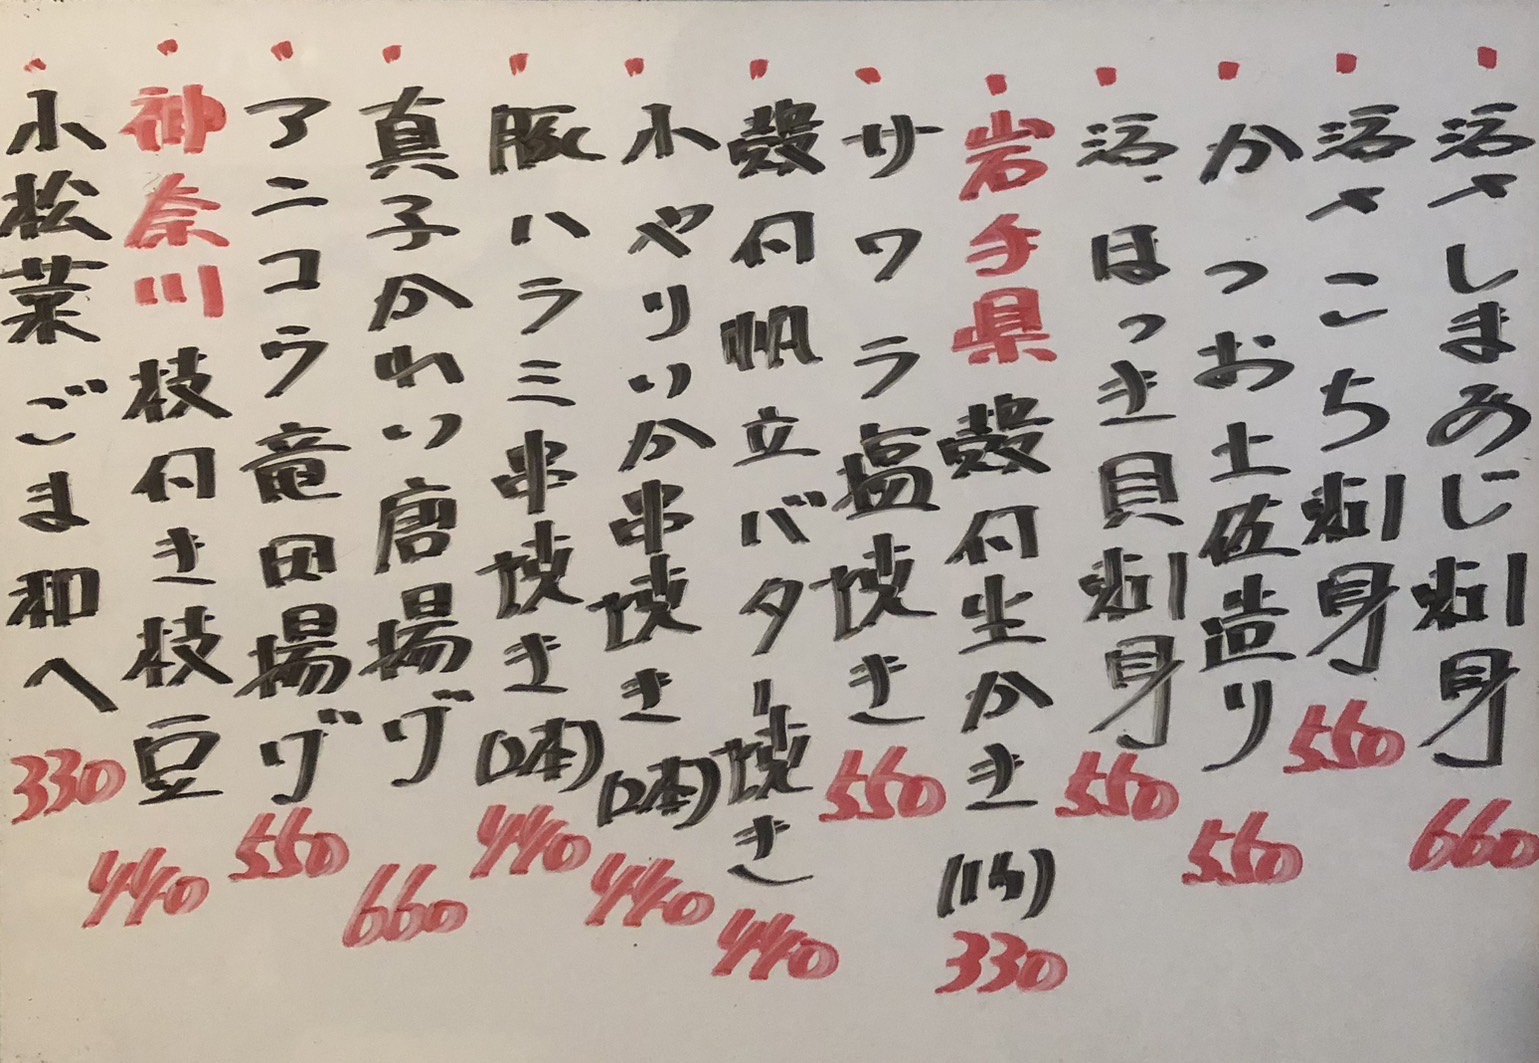 ・活〆しまあじ刺身 660
・活〆こち刺身 550
・かつお土佐造り 560
・活ほっき貝刺身 550
・岩手県殻付生かき(1ヶ) 330
・サワラ塩焼き 550
・殻付帆立バター焼き 440
・小やりいか串焼き(2本) 440
・豚ハラミ串焼き(2本) 440
・真子かれい唐揚げ 660
・アニコウ竜田揚げ 550
・神奈川枝付き枝豆 440
・小松菜ごま和へ 330